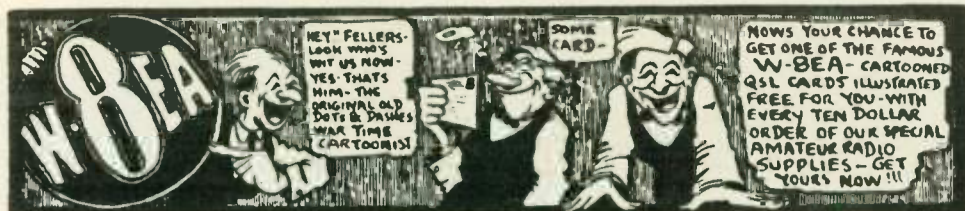 W-8EA
HEY" FELLERS-
LOOK WHO'S
WIT US NOW-
YES-THATS
HIM-THE
ORIGINAL OLD
DOTS & DASHES
WAR TIME
CARTOONIST
SOME
CARD-
NOWS YOUR CHANCE TO
GET ONE OF THE FAMOUS
W-8EA-CARTOONED
QSL CARDS ILLUSTRATED
FREE FOR YOU-WITH
EVERY TEN DOLLAR
ORDER OF OUR SPECIAL
AMATEUR RADIO
SUPPLIES-GET
YOURS NOW!!!